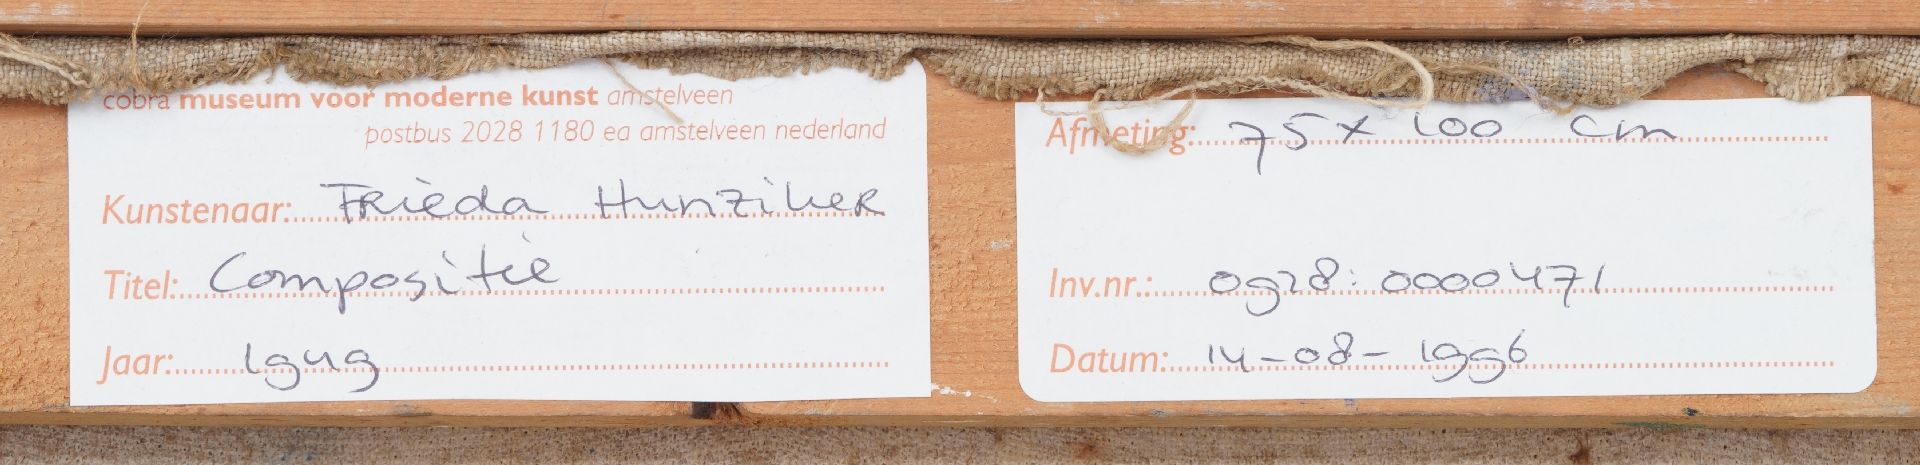 cobra museum voor moderne kunst amstelveen
postbus 2028 1180 ea amstelveen nederland
Kunstenaar: Frieda Hunziker
Titel: Compositie
Jaar: 1949
Afmeting: 75 x 100 cm
Inv.nr.: 0928:0000471
Datum: 14-08-1996